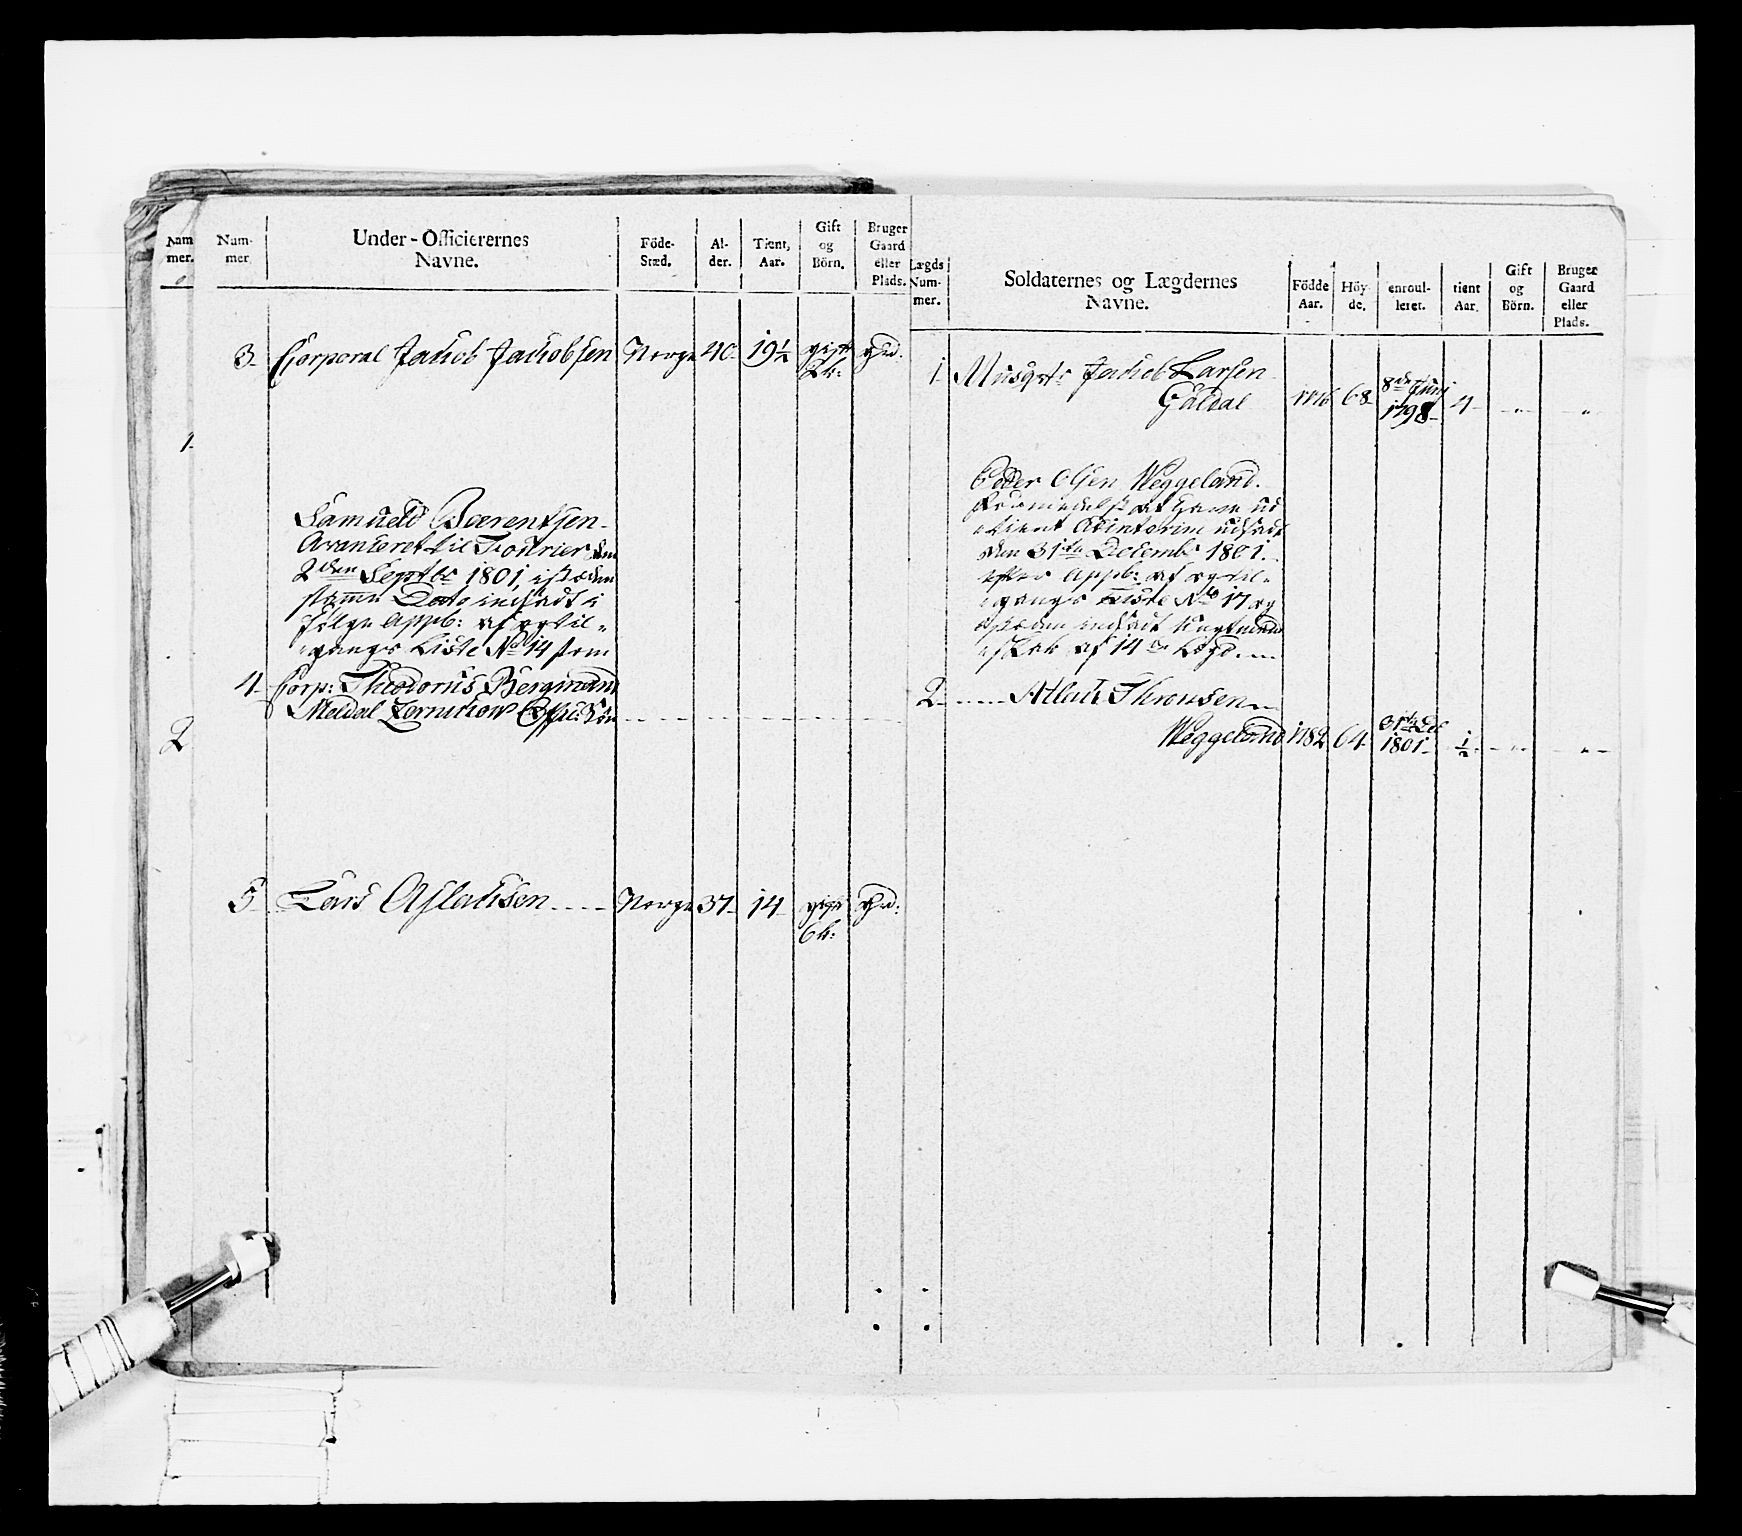 Num-
mer.
1
2
Num-
mer.
Under-Officierernes
Navne.
Föde-
Stæd.
Al-
der.
Tient,
Aar.
Gift
og
Börn.
Bruger
Gaard
eller
Plads.
3. Corporal Jacob Jacobsen Norge 40. 19½ gift grd.
2 b:
Samueld Bærentsen
Avanceret til Fourier den
2den Septbr 1801, istæden
samme Dato indsadt i
følge Appb: af og til-
gangs Liste No 14 som
4. Corp: Theodorus Bergmand
Meldal Zernichow Offic: Sön
5. Lars Aslachsen Norge 37. 14 gift grd:
6 b:
Lægds
Num-
mer.
Soldaternes og Lægdernes
Navne.
Födde
Aar.
Höy-
de.
enroul-
leret.
tient
Aar.
Gift
og
Börn.
Bruger
Gaard
eller
Plads.
1. Musqtr Jacob Larsen 8de Junj
Galdal 1776 68 1798 4 " "
Peder Olsen Weggeland.
formedelst at have ud
tient udsadt
den 31te Decembr 1801.
efter Appb: af og til-
gangs Liste No 17 og
istæden indsadt
af 14 Lægd
2. Atlak Thronsen
Weggeland 1782 64 31te Dec
1801 ½ " "